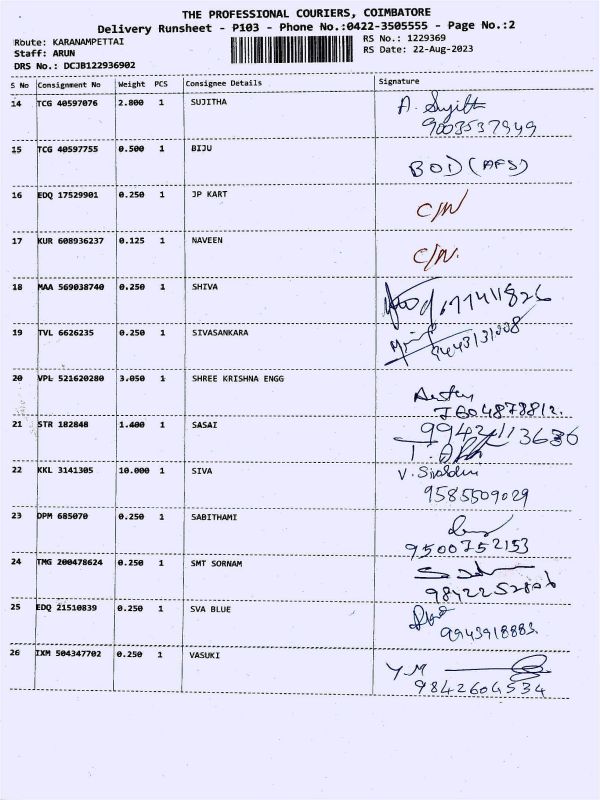 THE PROFESSIONAL COURIERS, COIMBATORE
Delivery Runsheet - P103 - Phone No.:0422-3505555 - Page No.:2
Route: KARANAMPETTAI
RS No.: 1229369
Staff: ARUN
RS Date: 22-Aug-2023
DRS No.: DCJB122936902
S No Consignment No Weight PCS Consignee Details Signature
14 TCG 40597076 2.800 1 SUJITHA A. Sujith
9003537949
15 TCG 40597755 0.500 1 BIJU
BOD (AFS)
16 EDQ 17529901 0.250 1 JP KART
C/N
17 KUR 608936237 0.125 1 NAVEEN
C/N.
18 MAA 569038740 0.250 1 SHIVA
19 TVL 6626235 0.250 1 SIVASANKARA
20 VPL 521620280 3.050 1 SHREE KRISHNA ENGG
21 STR 182848 1.400 1 SASAI
22 KKL 3141305 10.000 1 SIVA
9585509029
23 DPM 685070 0.250 1 SABITHAMI
9500752153
24 TMG 200478624 0.250 1 SMT SORNAM
25 EDQ 21510839 0.250 1 SVA BLUE
9943918883.
26 IXM 504347702 0.250 1 VASUKI
Y.M
9842604534